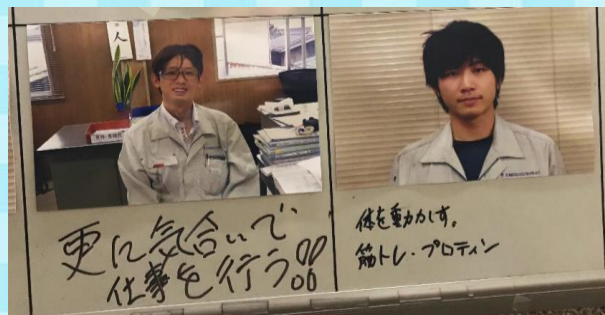 人
更に気合いで、
仕事を行う!!
体を動かす。
筋トレ・プロテイン